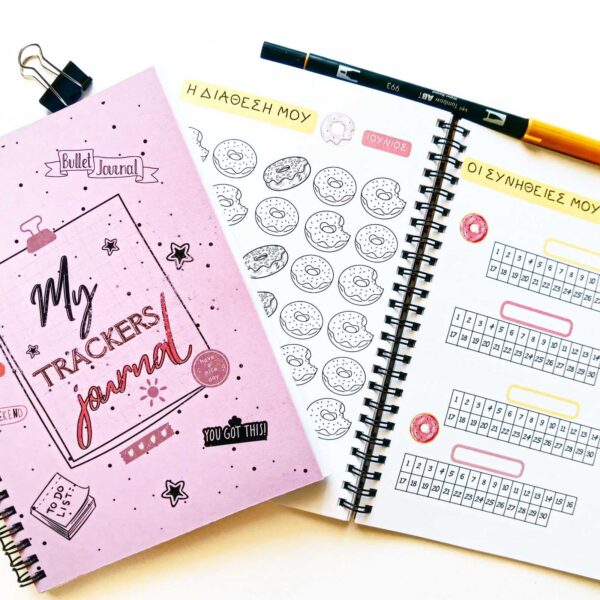 Bullet
Journal
My
TRACKERS
journal
have
a
nice
day
YOU GOT THIS!
TO DO
LIST
Η ΔΙΑΘΕΣΗ ΜΟΥ
ΙΟΥΝΙΟΣ
ABT
993
ΟΙ ΣΥΝΗΘΕΙΕΣ ΜΟΥ
1 2 3 4 5 6 7 8 9 10
17 18 19 20 21 22 23 24 25 26 27
1 2 3 4 5 6 7 8 9 10 11
17 18 19 20 21 22 23 24 25 26 27 28
1 2 3 4 5 6 7 8 9 10 11 12 13
17 18 19 20 21 22 23 24 25 26 27 28 29 30
1 2 3 4 5 6 7 8 9 10 11 12 13 14 15 16
17 18 19 20 21 22 23 24 25 26 27 28 29 30